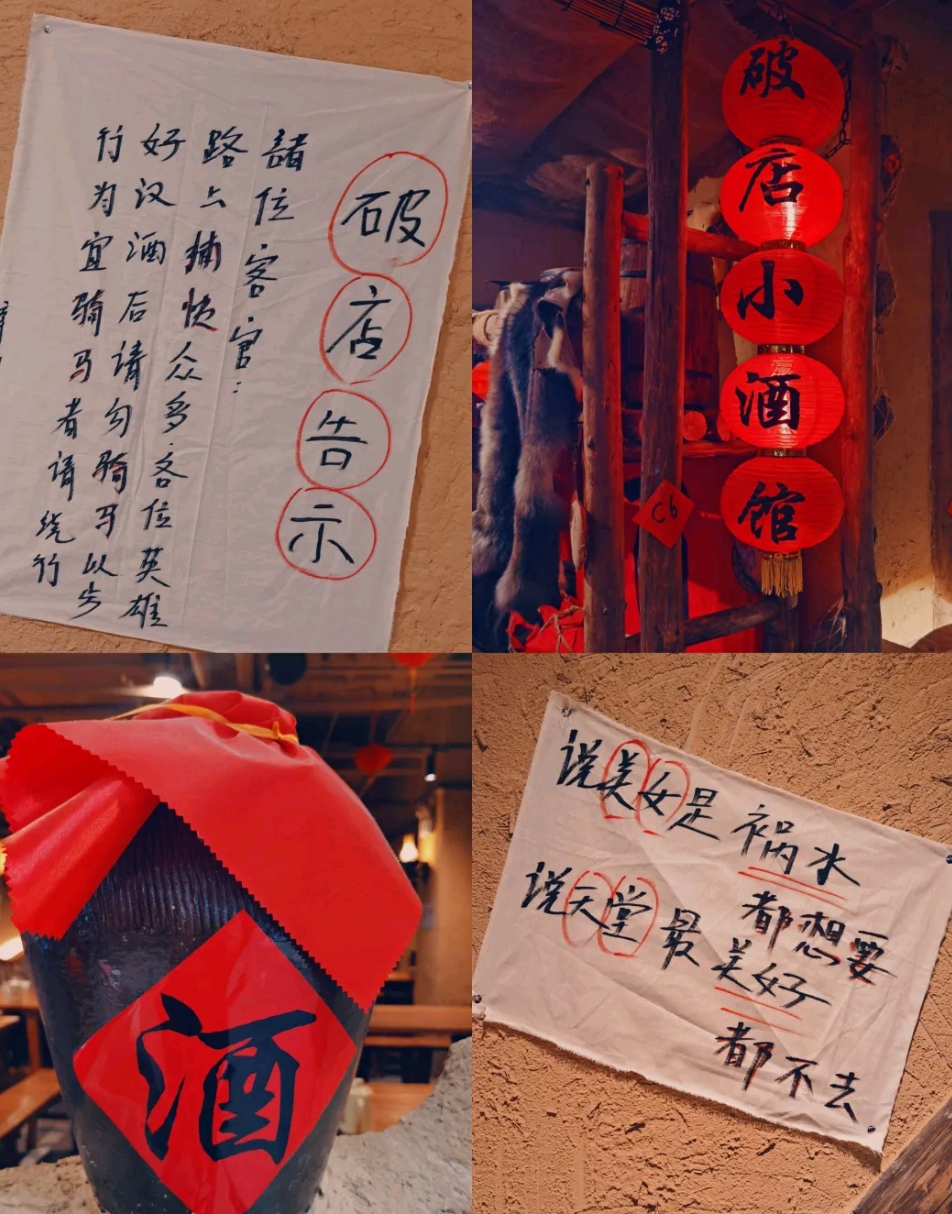 破店告示
諸位客官：
路上捕快众多.各位英雄
好汉酒后请勿骑马以步
行为宜骑马者请绕行
破店小酒馆
C6
酒
说美女是祸水
都想要
说天堂最美好
都不去